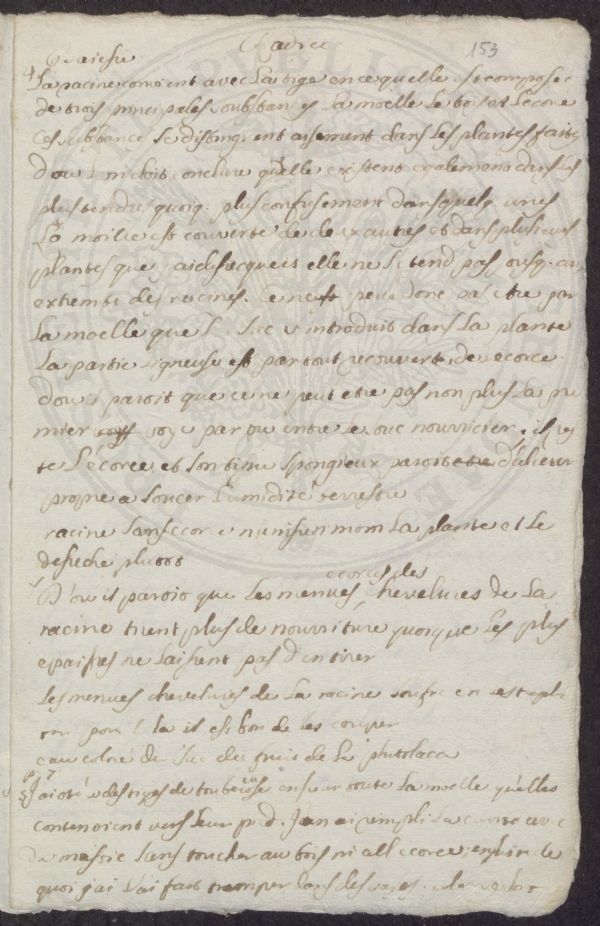 153
La racine convient avec La tige en ce quelle est composee
de trois principales substances La moelle Le bois et Lecorce
Ces substances se distinguent aisement dans Les plantes faites
dou L'on doit conclure qu'elle existent egalement dans Les
plus tendres quoiq. plus confusement dans quelq. unes
La moelle est couverte de deux autres et dans plusieurs
plantes que j'ai dessecquees elle ne s'etend pas jusq. aux
extremite des racines. Ce n'est peut donc pas etre par
La moelle que Le suc s'introduit dans La plante
La partie ligneuse est par tout recouverte de ecorce
dou il paroit que ce ne peut etre pas non plus La pre
mier voye par ou entre Le suc nourricier. il res
te L'écorce et son tissu spongieux paroit etre d'ailleur
propre a succer L'umidité terrestre
racine sans ecorce La plante et Le
deseche plutost
D'ou il paroit que Les menues ecorces des chevelures de La
racine tirent plus de nourriture quoique Les plus
epaisses ne laissent pas d'en tirer
Les menues chevelures de La racine
pour cela il est bon de les couper
eau colore du suc du fruit de La phitolacca
J'ai oté a des tiges de tubereuse en fleur toute La moelle qu'elles
contenoient vers Leur pied. J'en ai rempli La cavité avec
du mastic sans toucher au bois ni a l'ecorce, ensuite de
quoi j'ai fait tremper dans des vases